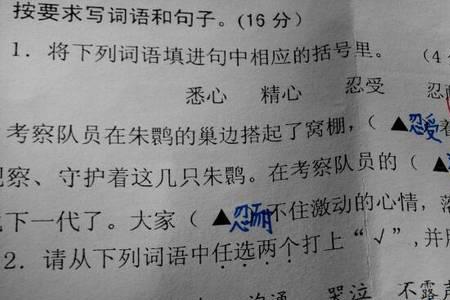 按要求写词语和句子。(16 分)
1. 将下列词语填进句中相应的括号里。 (4
悉心 精心 忍受 忍
考察队员在朱鹮的巢边搭起了窝棚, ( ▲忍受
察、守护着这几只朱鹮。在考察队员的 ( ▲
下一代了。大家 ( ▲忍耐不住激动的心情,
2. 请从下列词语中任选两个打上“√”, 并
哭泣 不露